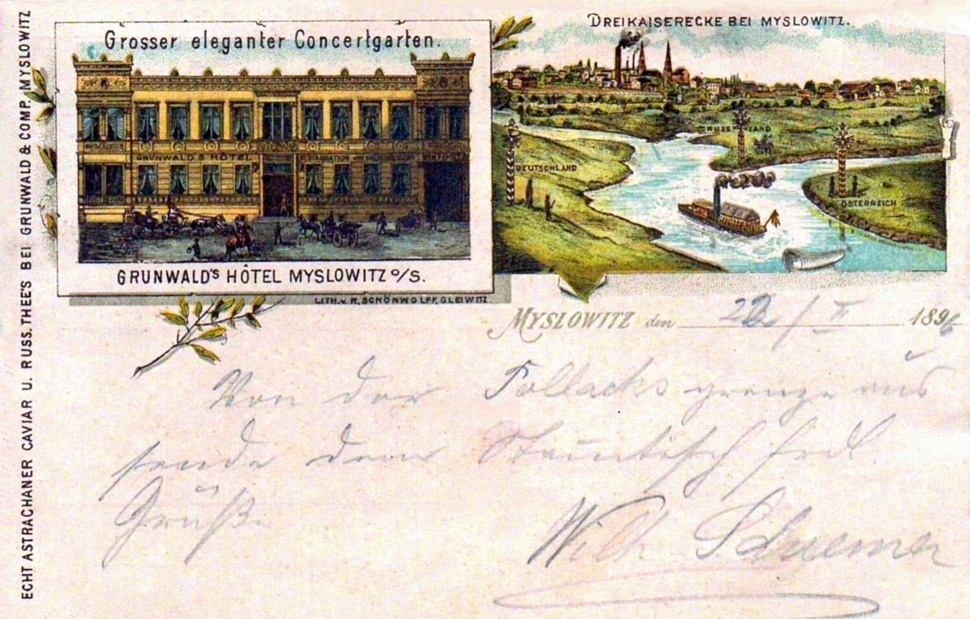 Grosser eleganter Concertgarten.
GRUNWALD'S HÔTEL
GRUNWALD'S HÔTEL MYSLOWITZ O/S.
LITH. v. R. SCHÖNWOLFF, GLEIWITZ
DREIKAISERECKE BEI MYSLOWITZ.
RUSSLAND
DEUTSCHLAND
ÖSTERREICH
ECHT ASTRACHANER CAVIAR U. RUSS. THEE'S BEI GRUNWALD & COMP. MYSLOWITZ
MYSLOWITZ den 22/II 1896
Von der Pollacks grenze aus
sende dem Stam̄tisch frdl.
Grüße
Wilh